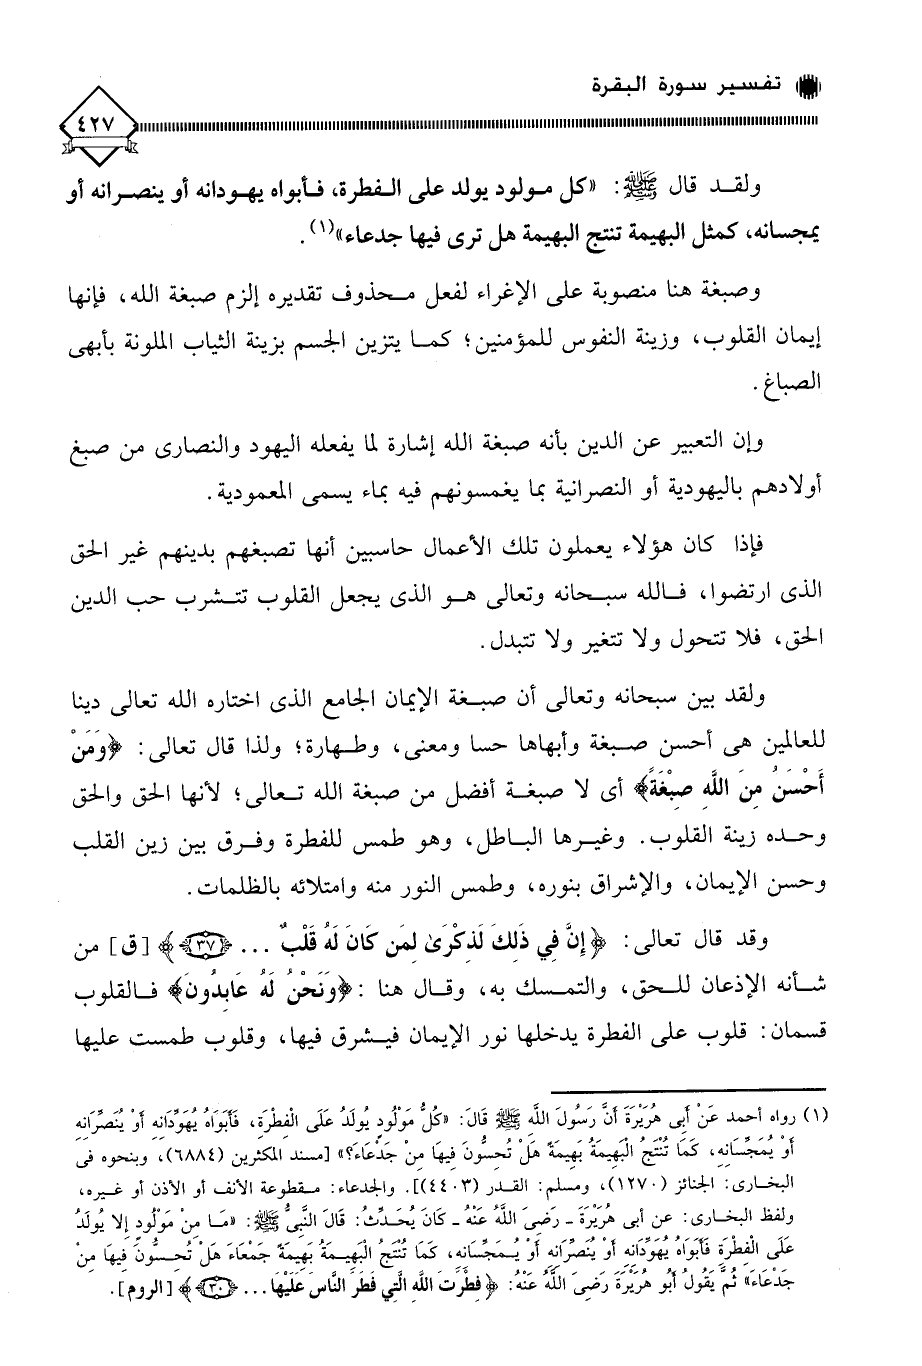 تفسير سورة البقرة
٤٢٧
ولقد قال ﷺ: «كل مولود يولد على الفطرة، فأبواه يهودانه أو ينصرانه أو
يمجسانه، كمثل البهيمة تنتج البهيمة هل ترى فيها جدعاء»(١).
وصبغة هنا منصوبة على الإغراء لفعل محذوف تقديره إلزم صبغة الله، فإنها
إيمان القلوب، وزينة النفوس للمؤمنين؛ كما يتزين الجسم بزينة الثياب الملونة بأبهى
الصباغ.
وإن التعبير عن الدين بأنه صبغة الله إشارة لما يفعله اليهود والنصارى من صبغ
أولادهم باليهودية أو النصرانية بما يغمسونهم فيه بماء يسمى المعمودية.
فإذا كان هؤلاء يعملون تلك الأعمال حاسبين أنها تصبغهم بدينهم غير الحق
الذى ارتضوا، فالله سبحانه وتعالى هو الذى يجعل القلوب تتشرب حب الدين
الحق، فلا تتحول ولا تتغير ولا تتبدل.
ولقد بين سبحانه وتعالى أن صبغة الإيمان الجامع الذى اختاره الله تعالى دينا
للعالمين هى أحسن صبغة وأبهاها حسا ومعنى، وطهارة؛ ولذا قال تعالى: ﴿وَمَنْ
أَحْسَنُ مِنَ اللَّهِ صِبْغَةً﴾ أى لا صبغة أفضل من صبغة الله تعالى؛ لأنها الحق والحق
وحده زينة القلوب. وغيرها الباطل، وهو طمس للفطرة وفرق بين زين القلب
وحسن الإيمان، والإشراق بنوره، وطمس النور منه وامتلائه بالظلمات.
وقد قال تعالى: ﴿إِنَّ فِي ذَلِكَ لَذِكْرَىٰ لِمَن كَانَ لَهُ قَلْبٌ ... ﴿٣٧﴾﴾ [ق] من
شأنه الإذعان للحق، والتمسك به، وقال هنا :﴿وَنَحْنُ لَهُ عَابِدُونَ﴾ فالقلوب
قسمان: قلوب على الفطرة يدخلها نور الإيمان فيشرق فيها، وقلوب طمست عليها
(١) رواه أحمد عَنْ أَبِى هُرَيْرَةَ أَنَّ رَسُولَ اللَّهِ ﷺ قَالَ: «كُلُّ مَوْلُودٍ يُولَدُ عَلَى الْفِطْرَةِ، فَأَبَوَاهُ يُهَوِّدَانِهِ أَوْ يُنَصِّرَانِهِ
أَوْ يُمَجِّسَانِهِ، كَمَا تُنْتَجُ الْبَهِيمَةُ بَهِيمَةً هَلْ تُحِسُّونَ فِيهَا مِنْ جَدْعَاءَ؟» [مسند المكثرين (٦٨٨٤)، وبنحوه فى
البخارى: الجنائز (١٢٧٠)، ومسلم: القدر (٤٤٠٣)]. والجدعاء: مقطوعة الأنف أو الأذن أو غيره،
ولفظ البخارى: عن أبى هُرَيْرَةَ ـ رَضِىَ اللَّهُ عَنْهُ ـ كَانَ يُحَدِّثُ: قَالَ النَّبِىُّ ﷺ: «مَا مِنْ مَوْلُودٍ إِلا يُولَدُ
عَلَى الْفِطْرَةِ فَأَبَوَاهُ يُهَوِّدَانِهِ أَوْ يُنَصِّرَانِهِ أَوْ يُمَجِّسَانِهِ، كَمَا تُنْتَجُ الْبَهِيمَةُ بَهِيمَةً جَمْعَاءَ هَلْ تُحِسُّونَ فِيهَا مِنْ
جَدْعَاءَ» ثُمَّ يَقُولُ أَبُو هُرَيْرَةَ رَضِىَ اللَّهُ عَنْهُ: ﴿فِطْرَتَ اللَّهِ الَّتِي فَطَرَ النَّاسَ عَلَيْهَا... ﴿٣٠﴾﴾ [الروم].